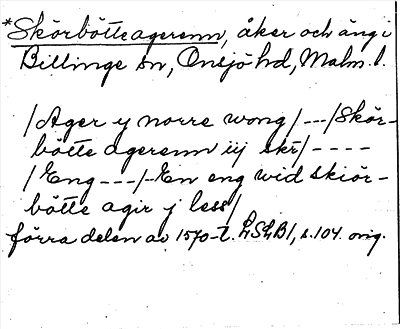 *Skörbötteagerenn, åker och äng i
Billinge sn, Onsjö hd, Malm. l.
/Ager y norre wong/ ---/Skör-
bötte agerenn iij skr/ ----
/Eng ---/-En eng wid skiör-
bötte agir j less/
förra delen av 1570-t. LSLB1, s. 104. orig.